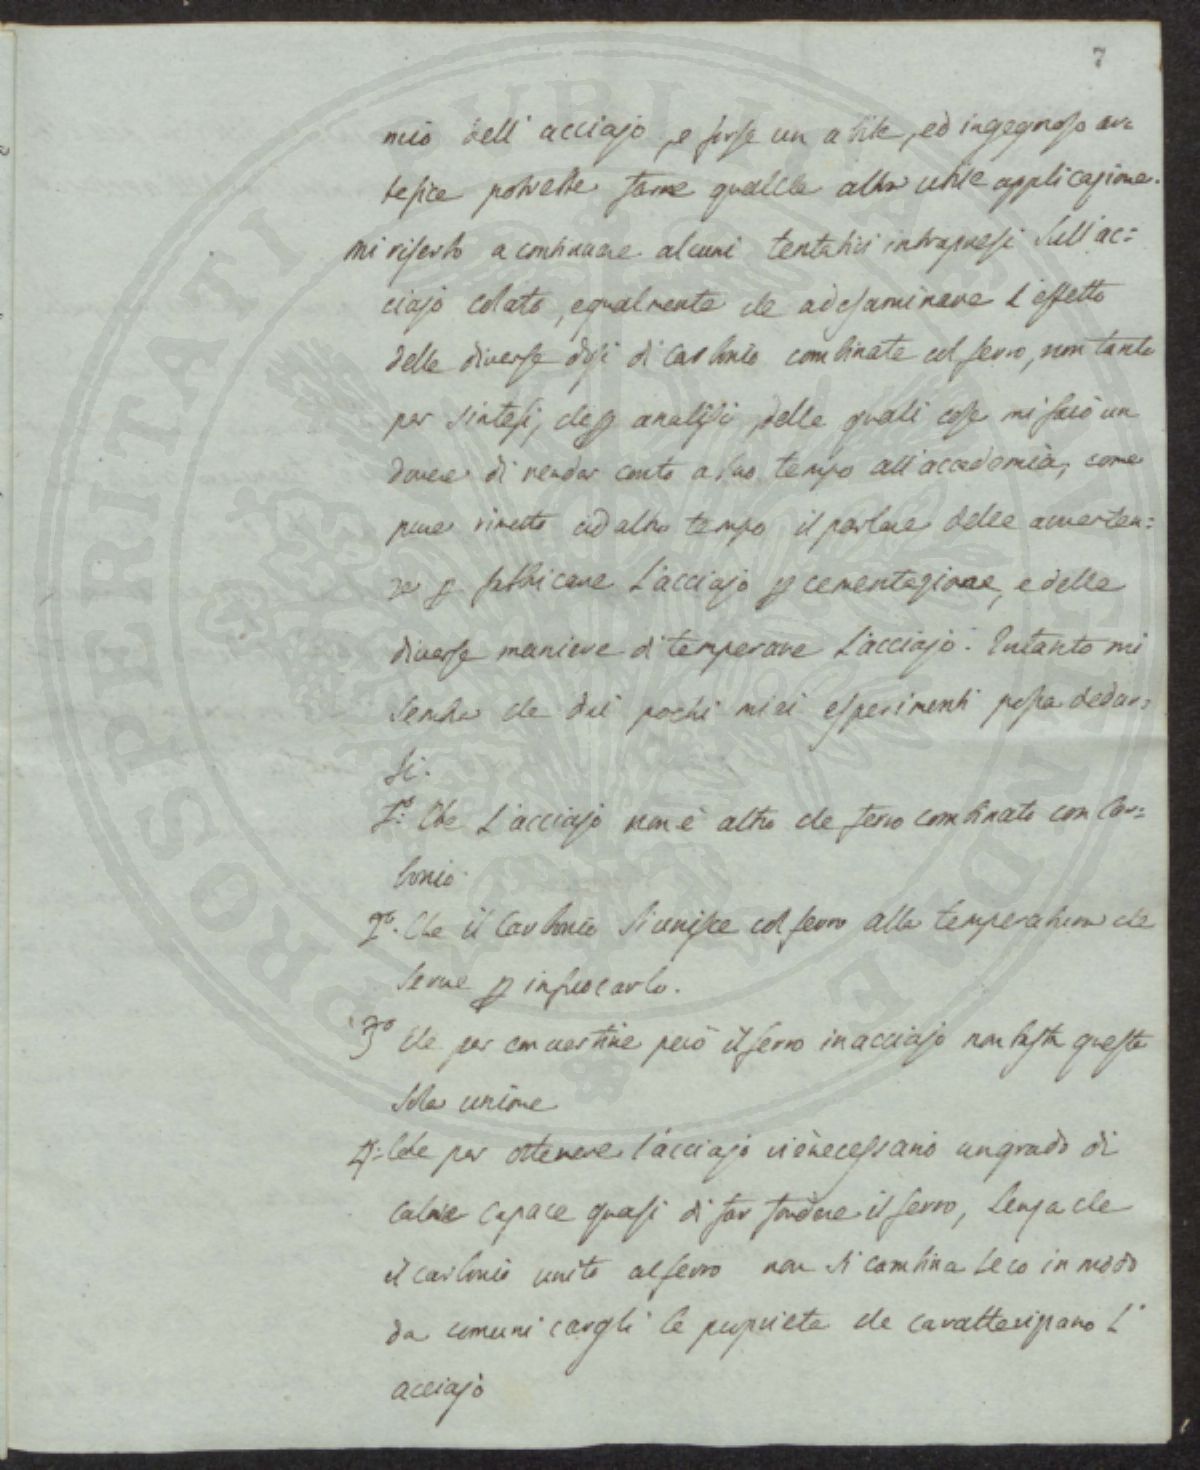 7
mio dell' acciajo, e forse un abile, ed ingegnoso ar=
tefice potrebbe farne qualche altra utile applicazione.
Mi riserbo a continuare alcuni tentativi intrapresi sull'ac=
ciajo colato, egualmente che ad esaminare l'effetto
delle diverse dosi di carbonio combinate col ferro, non tanto
per sintesi, che p analisi, delle quali cose mi farò un
dovere di render conto a suo tempo all'accademia, come
pure rimetto ad altro tempo il parlare delle avverten=
ze p fabbricare l'acciajo p cementazione, e delle
diverse maniere di temperare l'acciajo. Intanto mi
sembra che dai pochi miei esperimenti possa dedur=
si.
1.o Che l'acciajo non è altro che ferro combinato con Car=
bonio
2.o Che il Carbonio si unisce col ferro alla temperatura che
serve p infuocarlo.
3.o Che per convertire però il ferro in acciajo non basta questa
sola unione
4.o Che per ottenere l'acciajo vi è necessario un grado di
calore capace quasi di far fondere il ferro, senza che
il carbonio unito al ferro non si combina seco in modo
da comunicargli le proprietà che caratterizzano l'
acciajo
PROSPERITATI PUBLICAE AUGENDAE